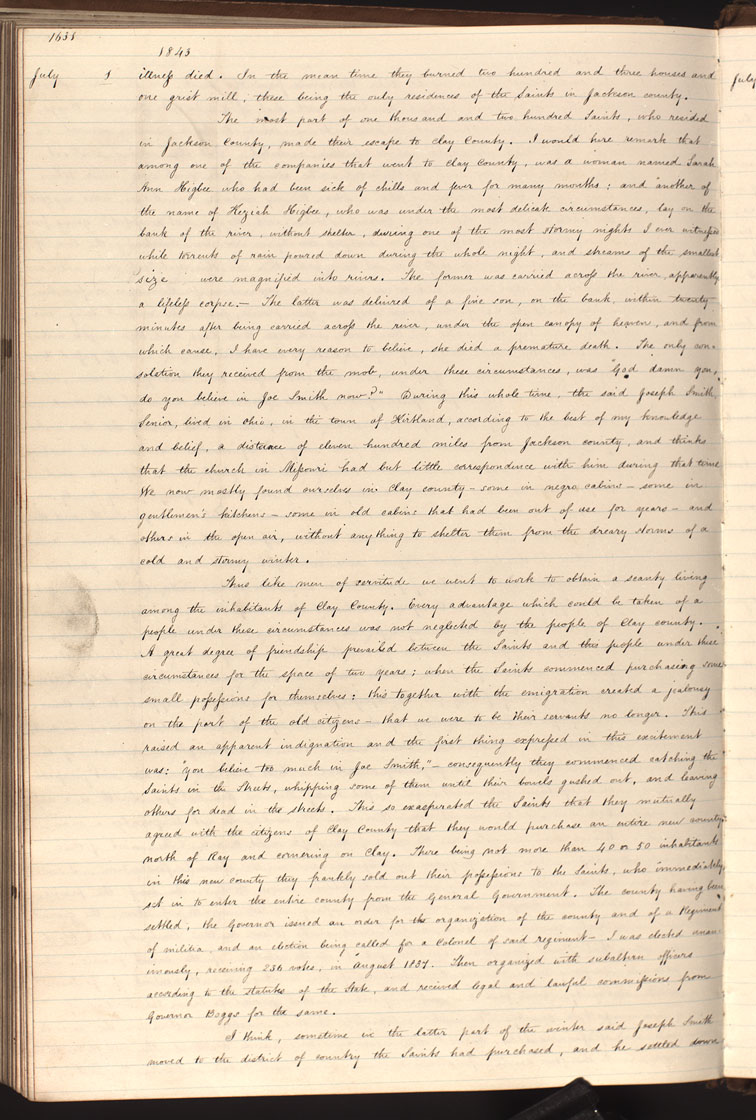 1638
1843
July 1 illness died. In the mean time they burned two hundred and three houses and
one grist mill, these being the only residences of the Saints in Jackson county.
The most part of one thousand and two hundred Saints, who resided
in Jackson County, made their escape to Clay County. I would here remark that
among one of the companies that went to Clay County, was a woman named Sarah
Ann Higbee who had been sick of chills and fever for many months; and another of
the name of Keziah Higbee, who was under the most delicate circumstances, lay on the
bank of the river, without shelter, during one of the most stormy nights I ever witnessed
while torrents of rain poured down during the whole night, and streams of the smallest
size were magnified into rivers. The former was carried across the river, apparently
a lifeless corpse.— The latter was delivred of a fine son, on the bank, within twenty
minutes after being carried across the river, under the open canopy of heaven, and from
which cause, I have every reason to believe, she died a premature death. The only con-
solation they received from the mob, under these circumstances, was "God damn you,
do you believe in Joe Smith now?" During this whole time, the said Joseph Smith,
Senior, lived in Ohio, in the town of Kirtland, according to the best of my knowledge
and belief, a distance of eleven hundred miles from Jackson county, and thinks
that the church in Missouri had but little correspondence with him during that time
We now mostly found ourselves in Clay county— some in negro cabins— some in
gentlemen's kitchens— some in old cabins that had been out of use for years— and
others in the open air, without anything to shelter them from the dreary storms of a
cold and stormy winter.
Thus like men of servitude we went to work to obtain a scanty living
among the inhabitants of Clay County. Every advantage which could be taken of a
people under these circumstances was not neglected by the people of Clay county.
A great degree of friendship prevailed between the Saints and this people under these
circumstances for the space of two years; when the Saints commenced purchasing some
small possessions for themselves; this together with the emigration created a jealousy
on the part of the old citizens— that we were to be their servants no longer. This
raised an apparent indignation and the first thing expressed in this excitement
was: "you believe too much in Joe Smith,"— consequently they commenced catching the
Saints in the streets, whipping some of them until their bowels gushed out, and leaving
others for dead in the streets. This so exasperated the Saints that they mutually
agreed with the citizens of Clay County that they would purchase an entire new county
north of Ray and cornering on Clay. There being not more than 40 or 50 inhabitants
in this new county they frankly sold out their possessions to the Saints, who immediately
set in to enter the entire county from the General Government. The county having been
settled, the Governor issued an order for the organization of the county and of a Regiment
of militia, and an election being called for a Colonel of said regiment— I was elected unan-
imously, receiving 236 votes, in August 1837. Then organized with subaltern officers
according to the statutes of the State, and received legal and lawful commissions from
Governor Boggs for the same.
I think, sometime in the latter part of the winter said Joseph Smith
moved to the district of country the Saints had purchased, and he settled down
July